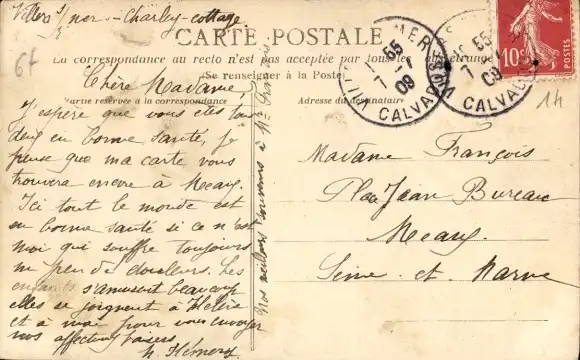 Villers s/mer - Charley-cottage
CARTE POSTALE
La correspondance au recto n'est pas acceptée par tous les étrangers
(Se renseigner à la Poste)
Partie réservée à la correspondance
Adresse du destinataire
67
Chère Madame,
J'espère que vous êtes tous
deux en bonne santé, je
pense que ma carte vous
trouvera encore à Meaux.
Ici tout le monde est
en bonne santé si ce n'est
moi qui souffre toujours
un peu de douleurs. Les
enfants s'amusent beaucoup
elles se joignent à Hélène
et à moi pour vous envoyer
nos affectueux baisers
h. Hémery
Nos meilleurs souvenirs à Mr
Madame François
Place Jean Bureau
Meaux
Seine-et-Marne
VILLERS MER
7 55
09
CALVADOS
7 55
09
CALVADOS
10
14